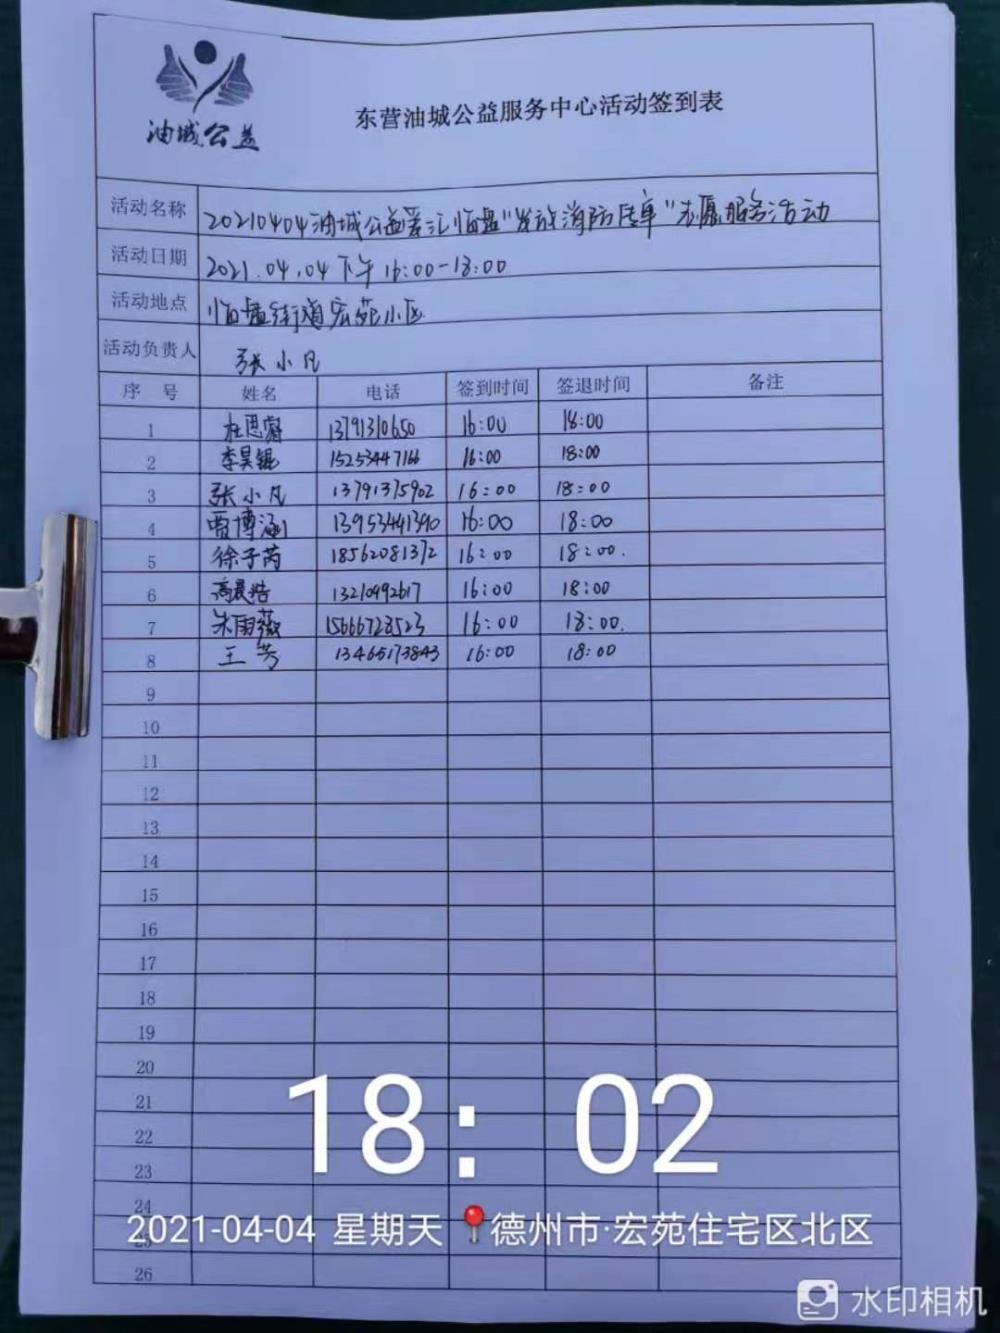 油城公益
东营油城公益服务中心活动签到表
活动名称 20210404油城公益爱汇临盘"发放消防传单"志愿服务活动
活动日期 2021.04.04下午16:00-18:00
活动地点 临盘街道宏苑小区
活动负责人 张小凡
序号 姓名 电话 签到时间 签退时间 备注
1 杜思睿 13791310650 16:00 18:00
2 李昊锟 15253447166 16:00 18:00
3 张小凡 13791375902 16:00 18:00
4 贾博涵 13953441390 16:00 18:00
5 徐子芮 18562081372 16:00 18:00.
6 高晨皓 13210992617 16:00 18:00
7 朱雨薇 15666728523 16:00 18:00.
8 王芳 13465173843 16:00 18:00
9
10
11
12
13
14
15
16
17
18
19
20
21
22
23
24
25
26
18:02
2021-04-04 星期天 德州市·宏苑住宅区北区
水印相机